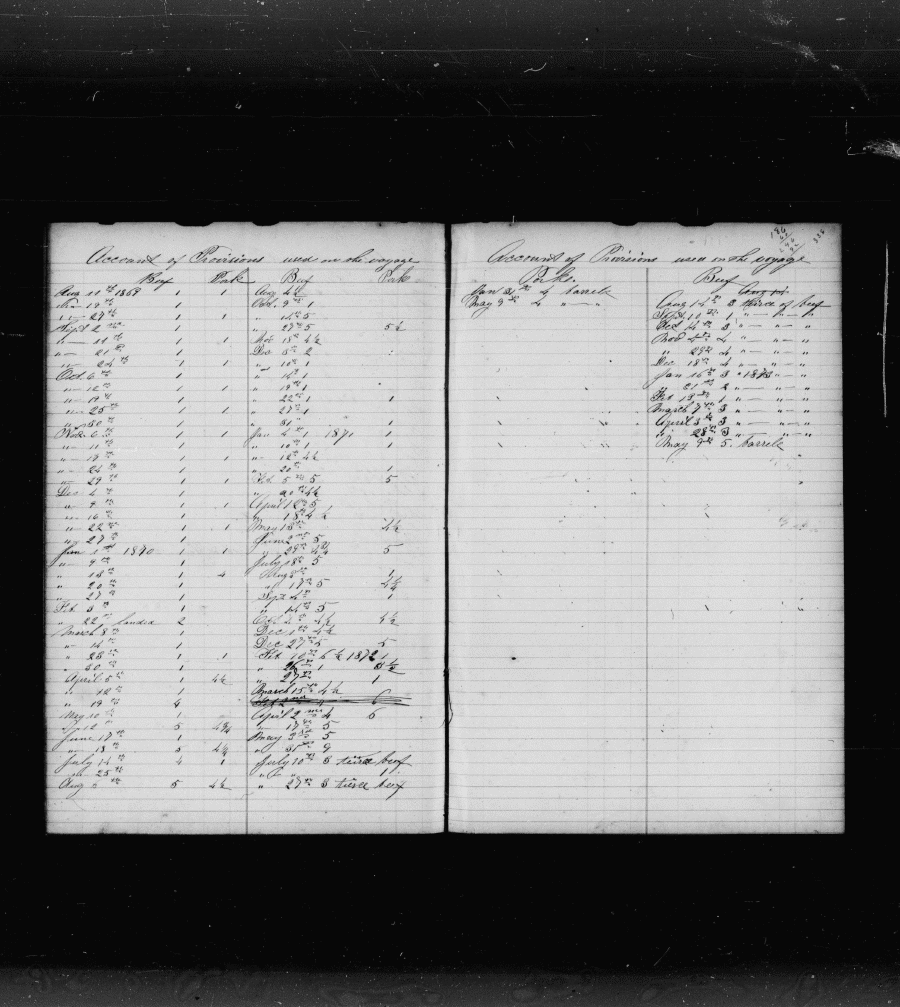 Account of Provisions used on the voyage
Beef Pork
Aug 11th 1869 1 1
" — 19th 1
" — 27th 1 1
Sept 2nd 1
" — 11th 1 1
" — 21st 1
" — 24th 1 1
Oct. 6th 1
" — 12th 1 1
" — 19th 1
" — 25th 1 1
" — 30th 1
Nov. 6th 1 1
" — 11th 1
" — 19th 1 1
" — 24th 1
" — 29th 1 1
Dec. 4th 1
" 9th 1 1
" 16th 1
" 22nd 1 1
" 27th 1
Jan 1st 1870 1 1
" — 9th 1
" 18th 1 4
" 20th 1
" 27th 1
Feb. 3rd 1
" 22nd landed 2
March 8th 1
" 14th 1
" 23rd 1 1
" 30th 1
April 5th 1 4½
" 12th 1
" 19th 4
May 10th 1
" 12th 5 4¾
June 17th 1
" 18th 5 4½
July 14th 4 1
" 25th
Aug 5th 5 4½
Beef Pork
Aug 4½
Oct. 9th 1
" 14th 5
" 27th 5 5½
Nov 18th 4½
Dec 8th 2
" 10th 1
" 16th 1
" 19th 1
" 22nd 1 1
" 27th 1
" 31st 1
Jan 4th 1 1871 1
" 10th 1 1
" 12th 4½
" 20th 1
Feb 5th 5 5
" 20th 4½
April 12th 5
" 18th 4½
May 15th 4½
June 2nd 5
" 29th 4¾ 5
July 18th 5
Aug 8th 1
" 17th 5 4¾
Sept 4th 1
" 14th 5
Oct 2nd 4½ 4½
Dec 1st 4½
Dec 27th 5 5
Feb 10th 5½ 1872 1
" 26th 1
" 27th 1
March 15th 4½
April 2nd 4 5
" 17th 5
May 3rd 5
" 31st 9
July 10th 3 tierce beef
" 27th 3 tierce beef
Account of Provisions used on the voyage
Porke
Jan 31st 4 barrels
May 9th 4 " — "
Beef
Aug 14th 3 tierce of beef
Sept. 10th 1 " — " — "
Oct 14th 3 " — " — "
Nov 4th 4 " — " — "
" 29th 4 " — " — "
Dec 18th 4 " — " — "
Jan 16th 3 " 1873 " — "
" 21st 2 " — " — "
Feb 13th 1 " — " — "
March 7th 3 " — " — "
April 3rd 3 " — " — "
" 28th 3 " — " — "
May 9th 5 barrels